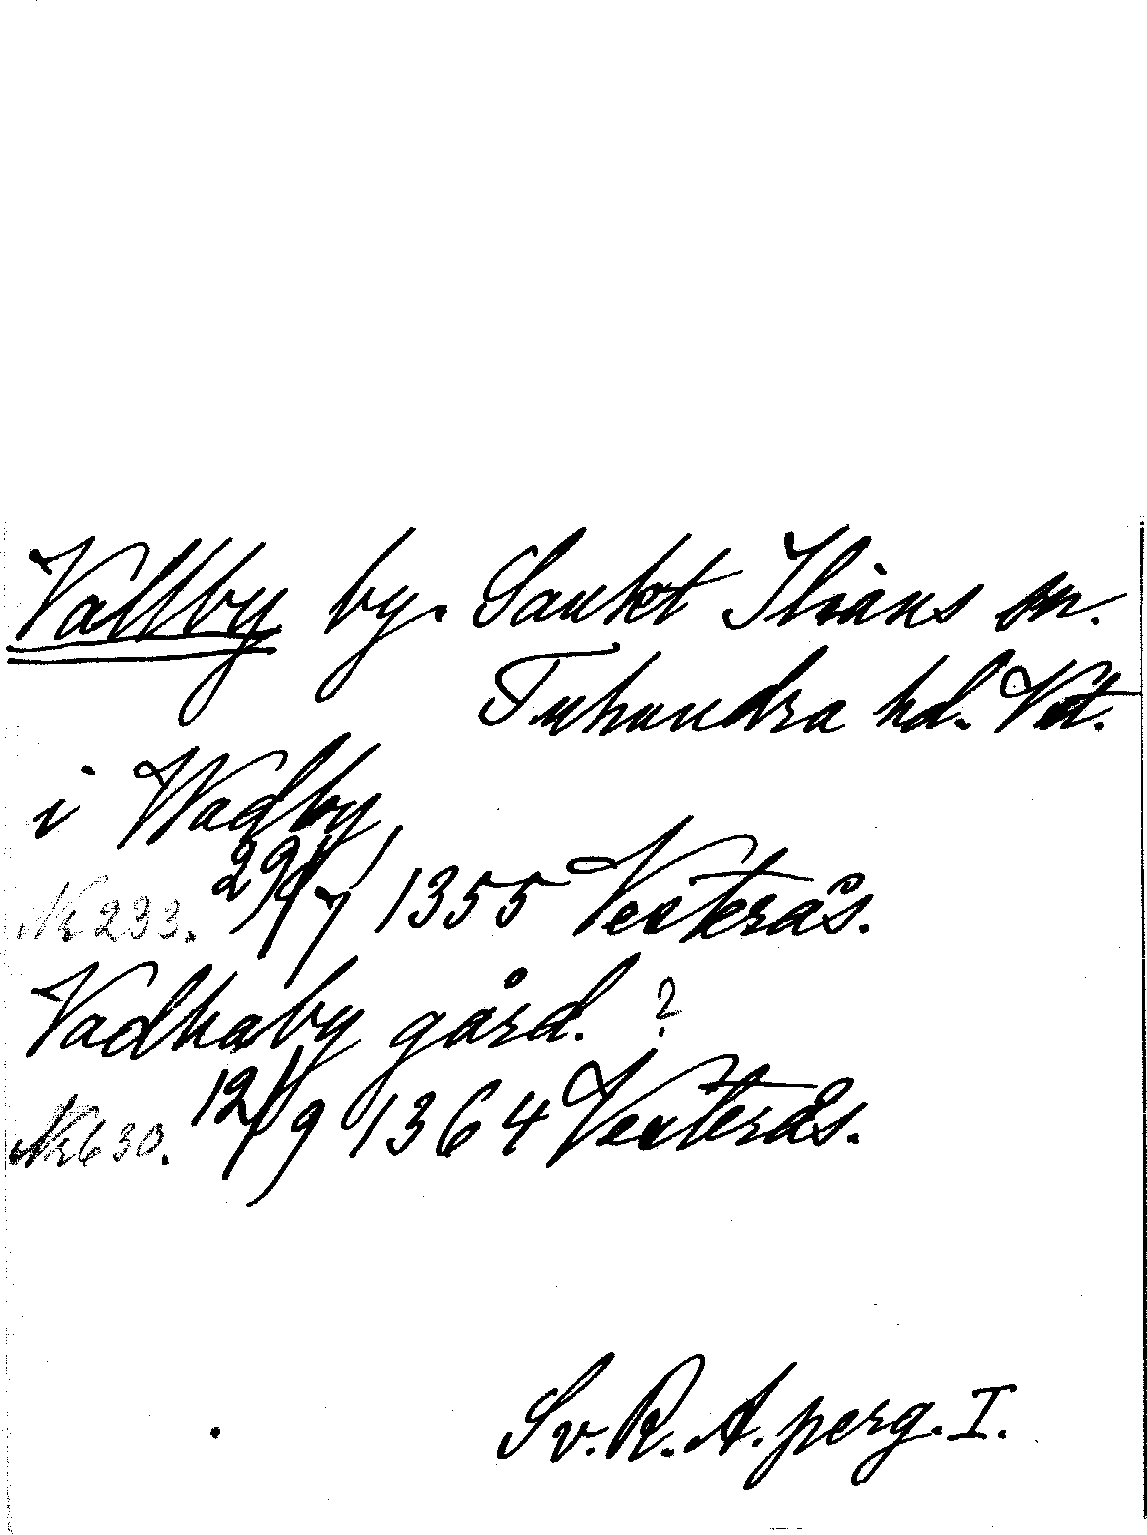 Vallby by. Sankt Ilians sn.
Tuhundra hd. Vstm.
i Wadby
Nr 233. 29/7 1355 Vesterås.
Vadhaby gård. ?
Nr 630. 12/9 1364 Vesterås.
Sv. R. A. perg. I.